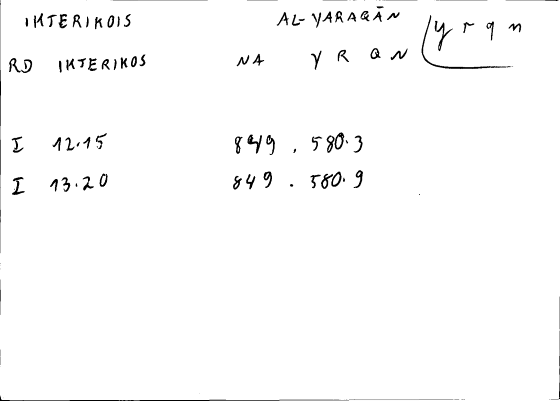 INTERIKOIS AL-YARAQĀN y r q n
RD INTERIKOS NA Y R Q N
I 12.15 849 . 580.3
I 13.20 849 . 580.9